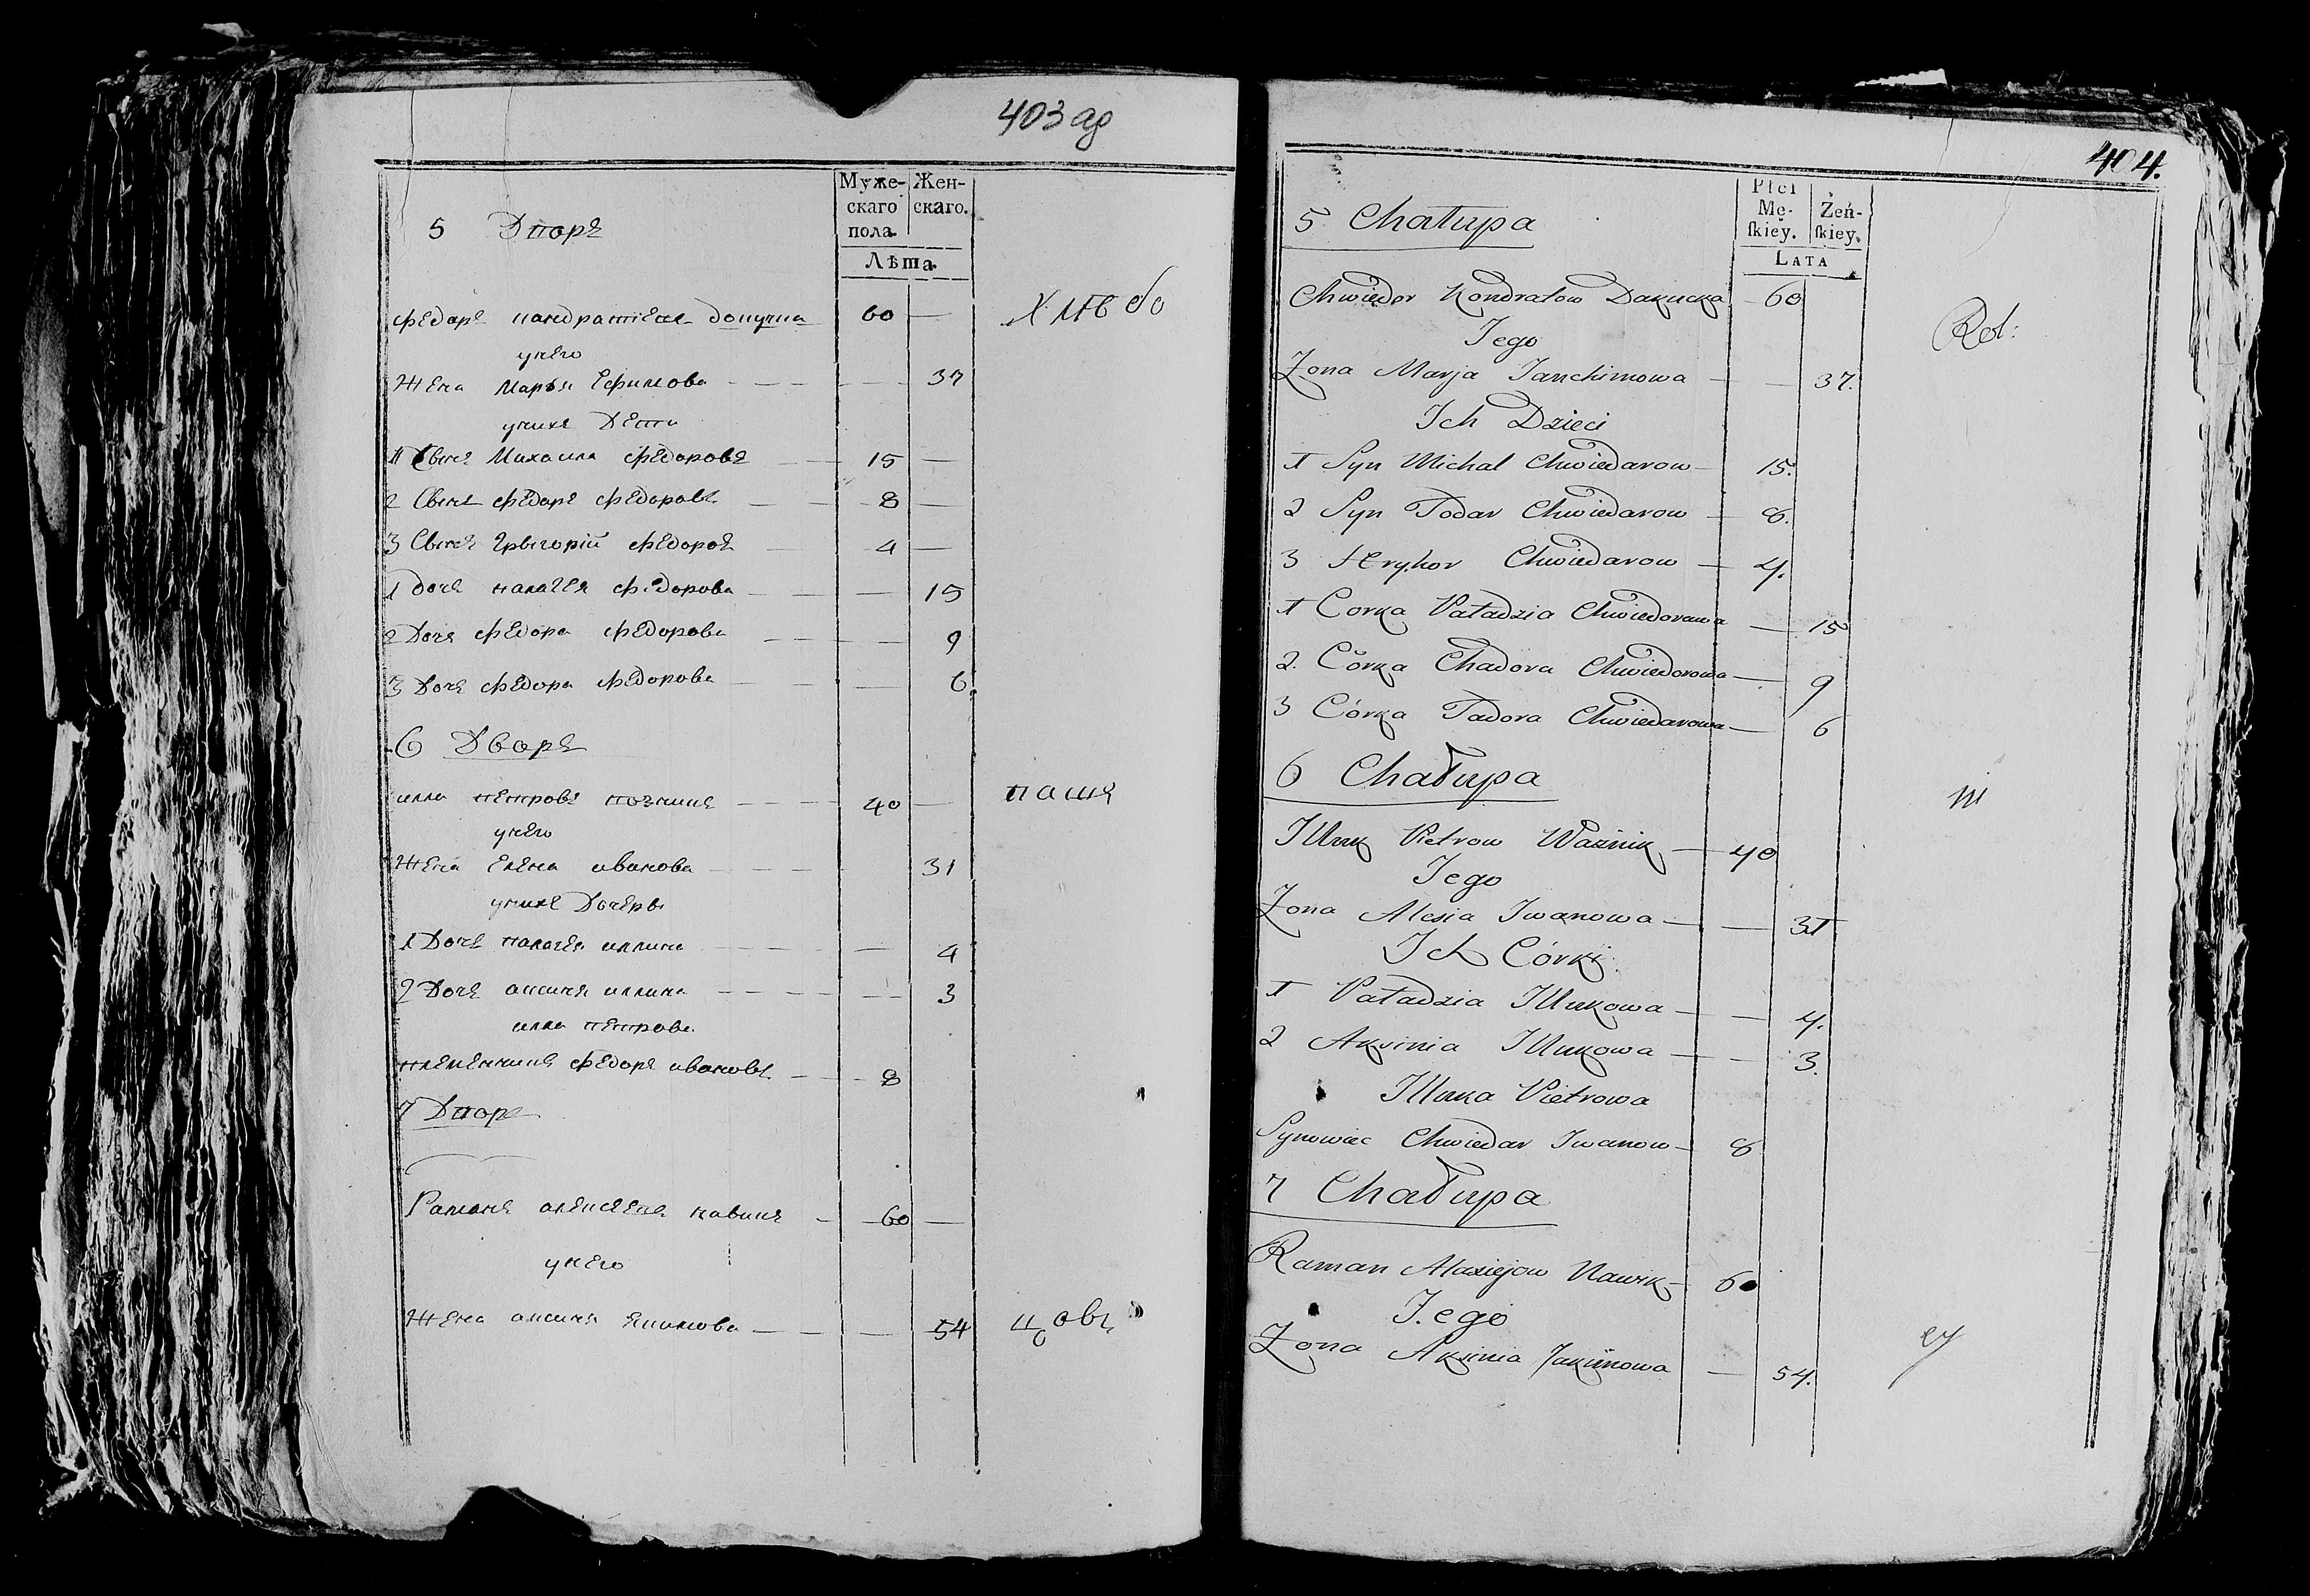 403 аg
Муже-
скаго
пола.
Жен-
скаго.
Лѣта.
5 Дворъ
Федоръ Кандратіевъ Докучка 60 —
Хлѣбо
унего
Жена Марья Ефимова 37
унихъ Дети
1 Сынъ Михаила Федоровъ 15 —
2 Сынъ Федоръ Федоровъ 8 —
3 Сынъ Грыгорій Федоровъ 4 —
1 дочь Палагея Федорова — 15
2 Дочь Федора Федорова — 9
3 Дочь Федора Федорова — 6.
6 Дворъ
илла Петровъ 40 —
паша
унего
Жена Елена иванова 31
унихъ Дочеры
1 Дочь Палагея иллина — 4
2 Дочь аксиня иллина — 3
илла Петрова
племенникъ Федоръ ивановъ 8
7 Дворъ
Раманъ алексеевъ Навикъ 60 —
унего
Жена аксиня якимова — 54
цовъ
404.
Płci
Mę-
ſkiey.
Żeń-
ſkiey.
LATA
5 Chałupa
Chwiedor Kondratow Dakucka 60
Rol:
Jego
Zona Marja Janchimowa — 37.
Ich Dzieci
1 Syn Michal Chwiedarow — 15.
2 Syn Todar Chwiedarow — 8.
3 Hryhor Chwiedarow — 4.
1 Corka Paładzia Chwiedorowa — 15
2. Córka Chadora Chwiedorowa — 9
3 Córka Tadora Chwiedarowa — 6
6 Chałupa
ni
Illuk Pietrow Waźnik — 40
Jego
Zona Alesia Iwanowa — 31
Ich Córki
1 Paładzia Illukowa — 4.
2 Aksinia Illukowa — 3.
Illuka Pietrowa
Synowiec Chwiedar Iwanow — 8
7 Chałupa
Raman Alaxiejow Nawik — 60
Jego
Zona Aksinia Jakimowa — 54.
cy